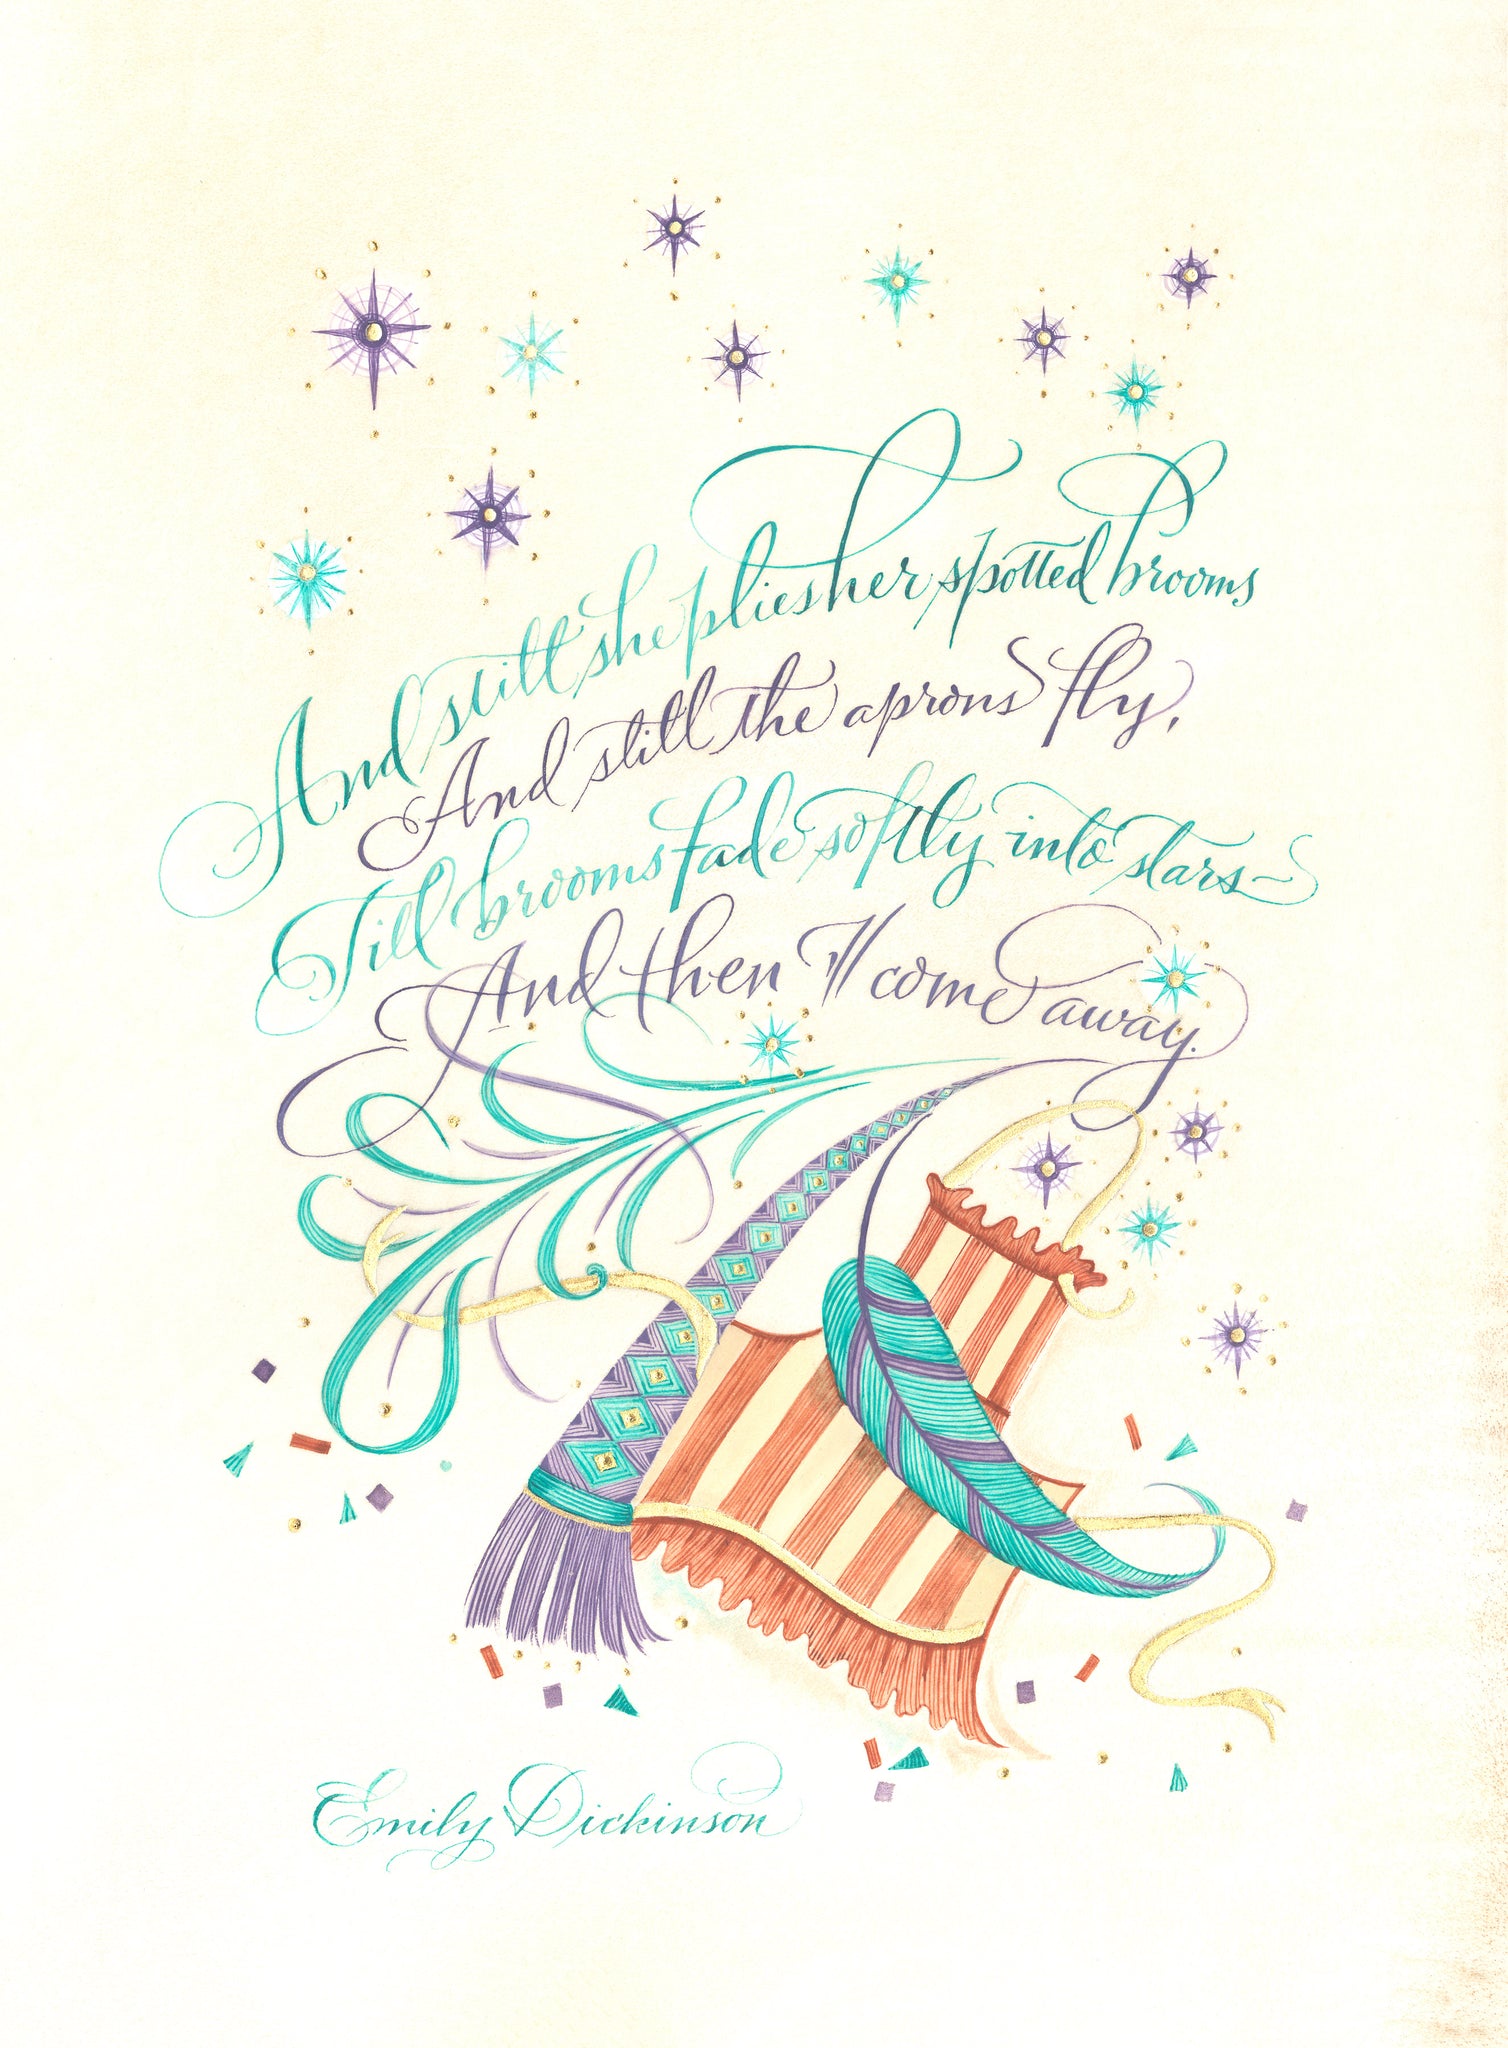 And still she plies her spotted brooms
And still the aprons fly,
Till brooms fade softly into stars –
And then I'll come away.
Emily Dickinson